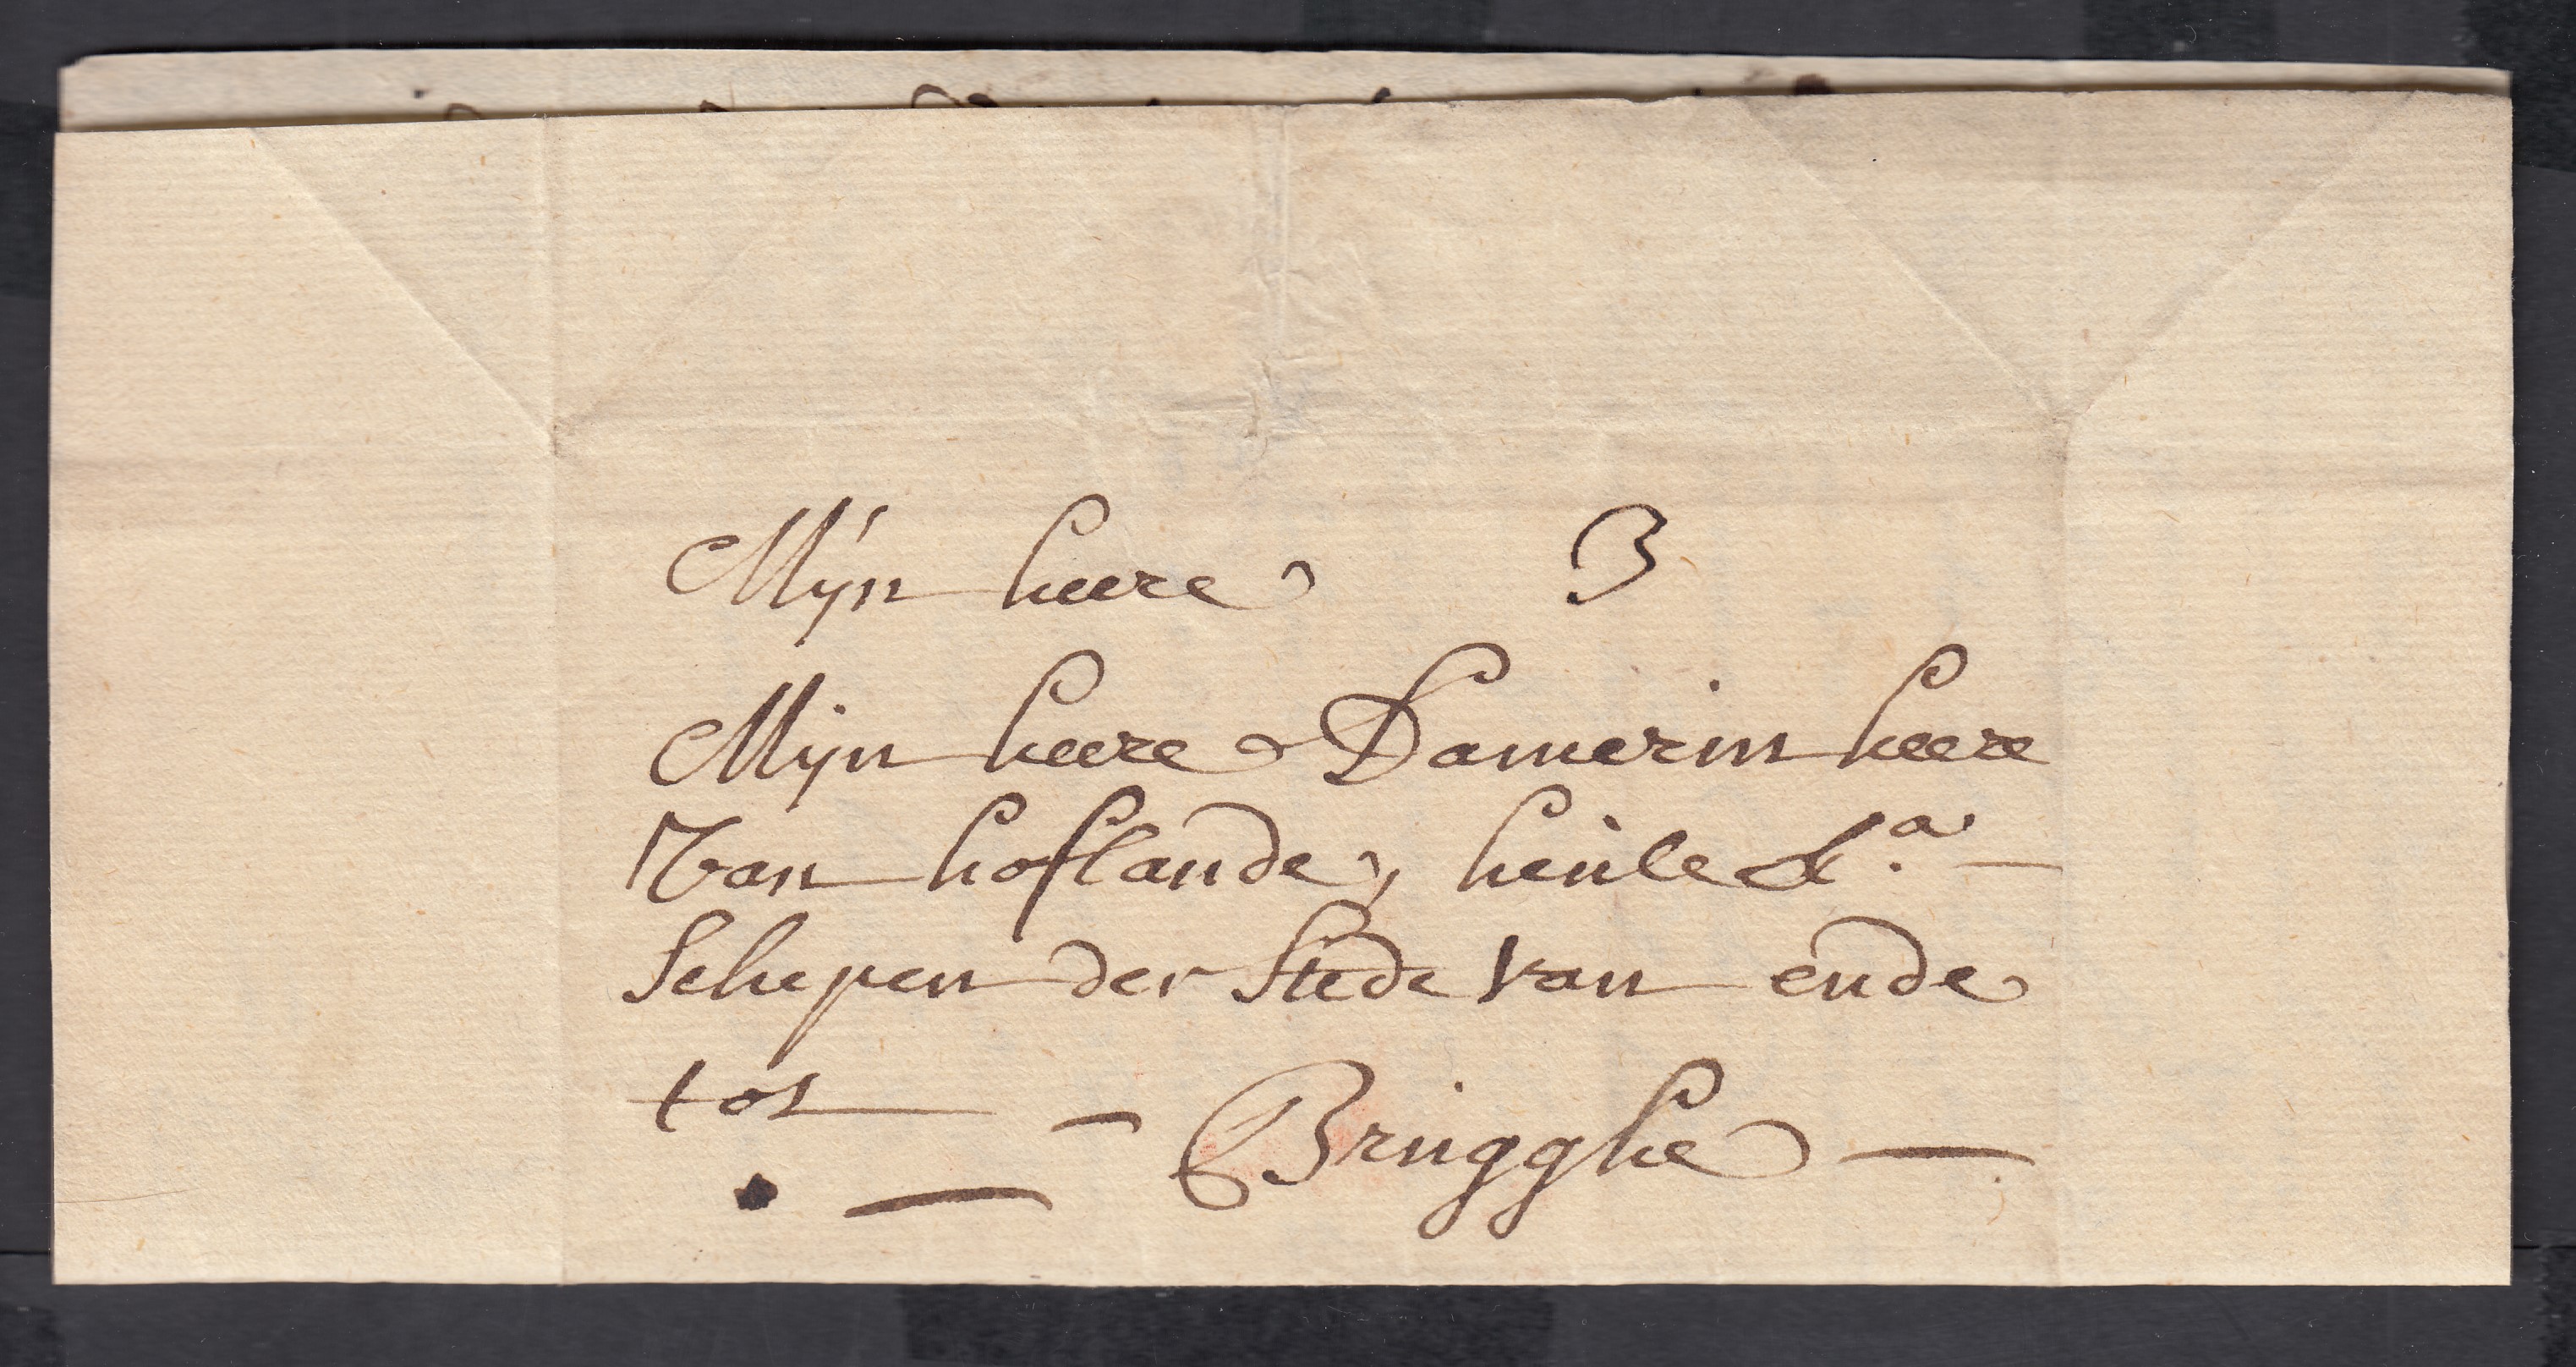 Mijn heere 3
Mijn heere Damerin heere
Van hoflande, heule &.a
Schepen der Stede van ende
tot
Brugghe